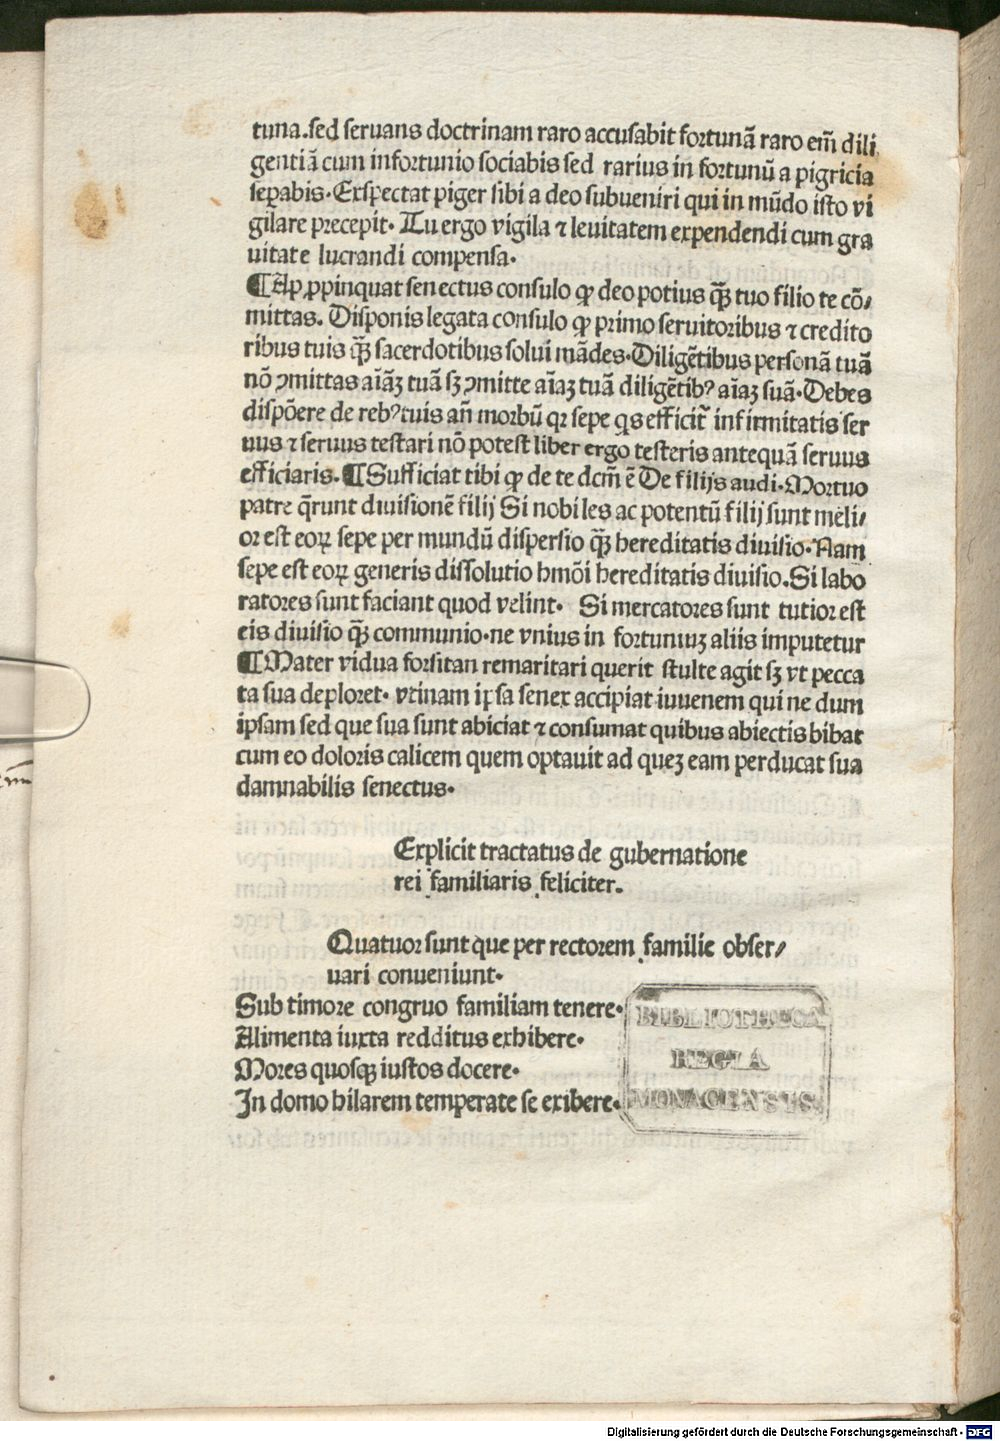 tuna.sed seruans doctrinam raro accusabit fortunā raro em̄ dili
gentiā cum infortunio sociabis sed rarius in fortunū a pigricia
seꝑabis. Exspectat piger sibi a deo subueniri qui in mūdo isto vi
gilare precepit. Tu ergo vigila ⁊ leuitatem expendendi cum gra
uitate lucrandi compensa.
¶Ap ꝓpinquat senectus consulo ꝙ deo potius qꝫ̄ tuo filio te cō/
mittas. Disponis legata consulo ꝙ primo seruitoribus ⁊ credito
ribus tuis qꝫ̄ sacerdotibus solui mādes. Diligētibus personā tuā
nō ꝯmittas aīāꝫ tuā sꝫ ꝯmitte aīaꝫ tuā diligētibꝰ aīaꝫ suā. Debes
dispōere de rebꝰ tuis an̄ morbū qꝛ sepe qs efficit᷑ infirmitatis ser
uus ⁊ seruus testari nō potest liber ergo testeris antequā seruus
efficiaris. ¶Sufficiat tibi ꝙ de te dcm̄ ē De filijs audi. Mortuo
patre q̄runt diuisionē filij Si nobiles ac potentū filij sunt meli/
or est eoꝝ sepe per mundū dispersio qꝫ̄ hereditatis diuisio. Nam
sepe est eoꝝ generis dissolutio hmōi hereditatis diuisio. Si labo
ratores sunt faciant quod velint. Si mercatores sunt tutior est
eis diuisio qꝫ̄ communio. ne vnius in fortuniuꝫ aliis imputetur
¶Mater vidua forsitan remaritari querit stulte agit sꝫ vt pecca
ta sua deploret. vtinam ipsa senex accipiat iuuenem qui ne dum
ipsam sed que sua sunt abiciat ⁊ consumat quibus abiectis bibat
cum eo doloris calicem quem optauit ad queꝫ eam perducat sua
damnabilis senectus.
Explicit tractatus de gubernatione
rei familiaris feliciter.
Quatuor sunt que per rectorem familie obser/
uari conueniunt.
Sub timore congruo familiam tenere.
Alimenta iuxta redditus exhibere.
Mores quosqꝫ iustos docere.
In domo hilarem temperate se exibere.
BIBLIOTHECA
REGIA
MONACENSIS.
Digitalisierung gefördert durch die Deutsche Forschungsgemeinschaft - DFG